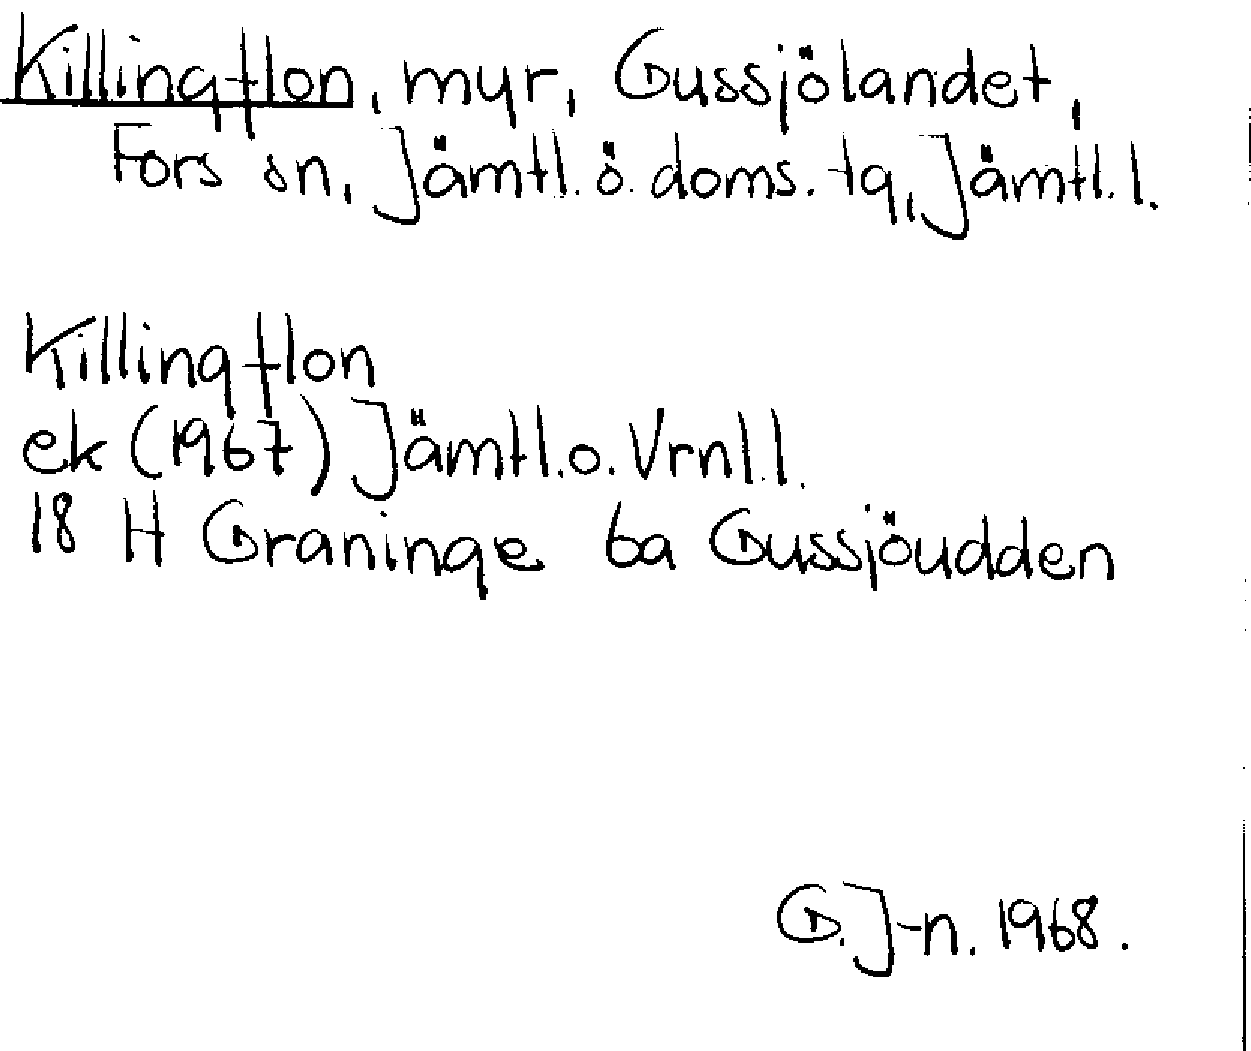 Killingflon, myr, Gussjölandet,
Fors sn, Jämtl. ö. doms. tg, Jämtl. l.
Killingflon
ek (1967) Jämtl. o. Vrnl. l.
18 H Graninge 6a Gussjöudden
G. J-n. 1968.